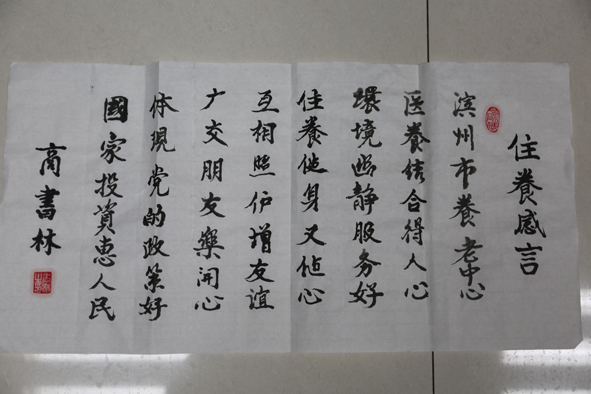 住養感言
滨州市養老中心
医養结合得人心
環境幽静服务好
住養健身又健心
互相照护增友谊
广交朋友樂開心
体現党的政策好
國家投資惠人民
商書林